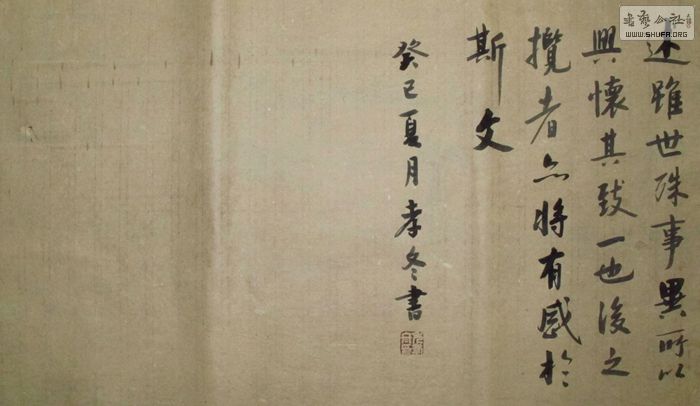 述雖世殊事異所以
興懷其致一也後之
攬者亦將有感於
斯文
癸巳夏月孝冬書
書藝公社
www.SHUFA.ORG